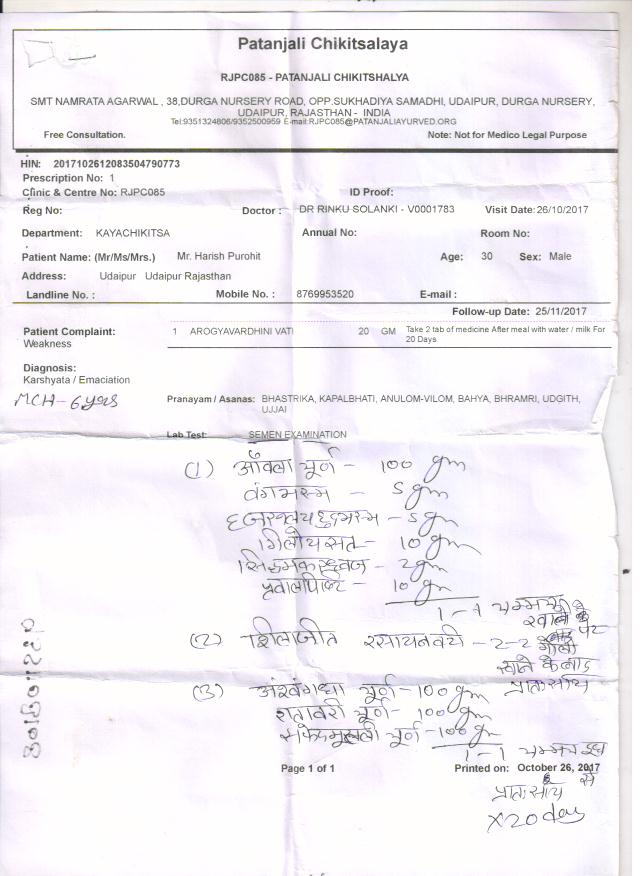 Patanjali Chikitsalaya
RJPC085 - PATANJALI CHIKITSHALYA
SMT NAMRATA AGARWAL , 38,DURGA NURSERY ROAD, OPP.SUKHADIYA SAMADHI, UDAIPUR, DURGA NURSERY,
UDAIPUR, RAJASTHAN - INDIA
Tel:9351324806/9352500959 E-mail:RJPC085@PATANJALIAYURVED.ORG
Free Consultation. Note: Not for Medico Legal Purpose
HIN: 2017102612083504790773
Prescription No: 1
Clinic & Centre No: RJPC085 ID Proof:
Reg No: Doctor : DR RINKU SOLANKI - V0001783 Visit Date: 26/10/2017
Department: KAYACHIKITSA Annual No: Room No:
Patient Name: (Mr/Ms/Mrs.) Mr. Harish Purohit Age: 30 Sex: Male
Address: Udaipur Udaipur Rajasthan
Landline No. : Mobile No. : 8769953520 E-mail :
Follow-up Date: 25/11/2017
Patient Complaint: 1 AROGYAVARDHINI VATI 20 GM Take 2 tab of medicine After meal with water / milk For
Weakness 20 Days
Diagnosis:
Karshyata / Emaciation
MCH - 6 years Pranayam / Asanas: BHASTRIKA, KAPALBHATI, ANULOM-VILOM, BAHYA, BHRAMRI, UDGITH,
UJJAI
Lab Test: SEMEN EXAMINATION
(1) आंवला चूर्ण - 100 gm
वंगभस्म - 5 gm
- 5 gm
गिलोय सत - 10 gm
- 2 gm
प्रवालपिष्टि - 10 gm
1 - 1 चम्मच
खाली
पेट
(2) शिलाजीत रसायनवटी - 2-2 गोली
खाने के बाद
प्रातः सायं
(3) अश्वगंधा चूर्ण - 100 gm
शतावरी चूर्ण - 100 gm
सफेद मूसली चूर्ण - 100 gm
1 - 1 चम्मच दूध
Page 1 of 1 Printed on: October 26, 2017
से
प्रातः सायं
X 20 day